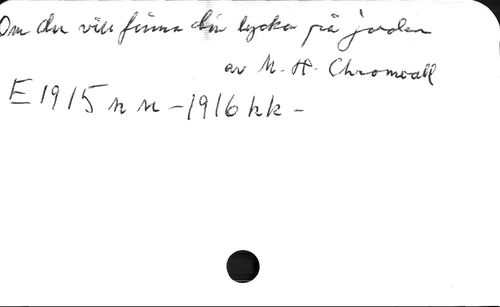 Om du vill finna din lycka på jorden
av M. H. Chromvall
E 1915 n n - 1916 h h -